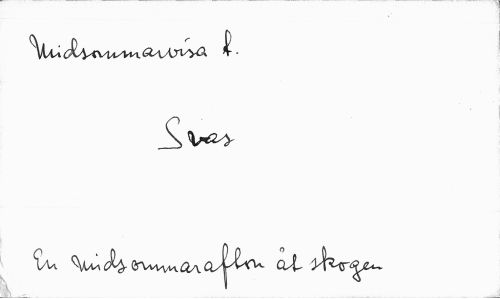 Midsommarvisa t.
Svas
En midsommarafton åt skogen